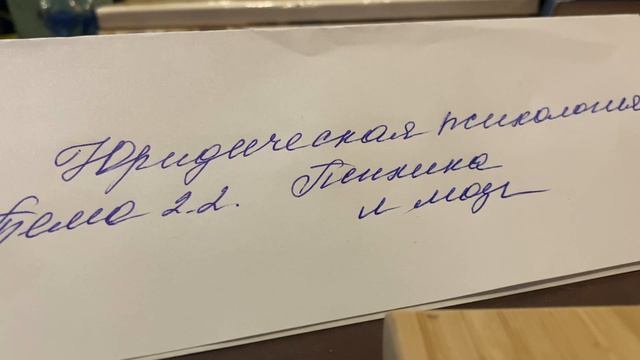 Юридическая психология
Тема 2.2. Психика
и мозг